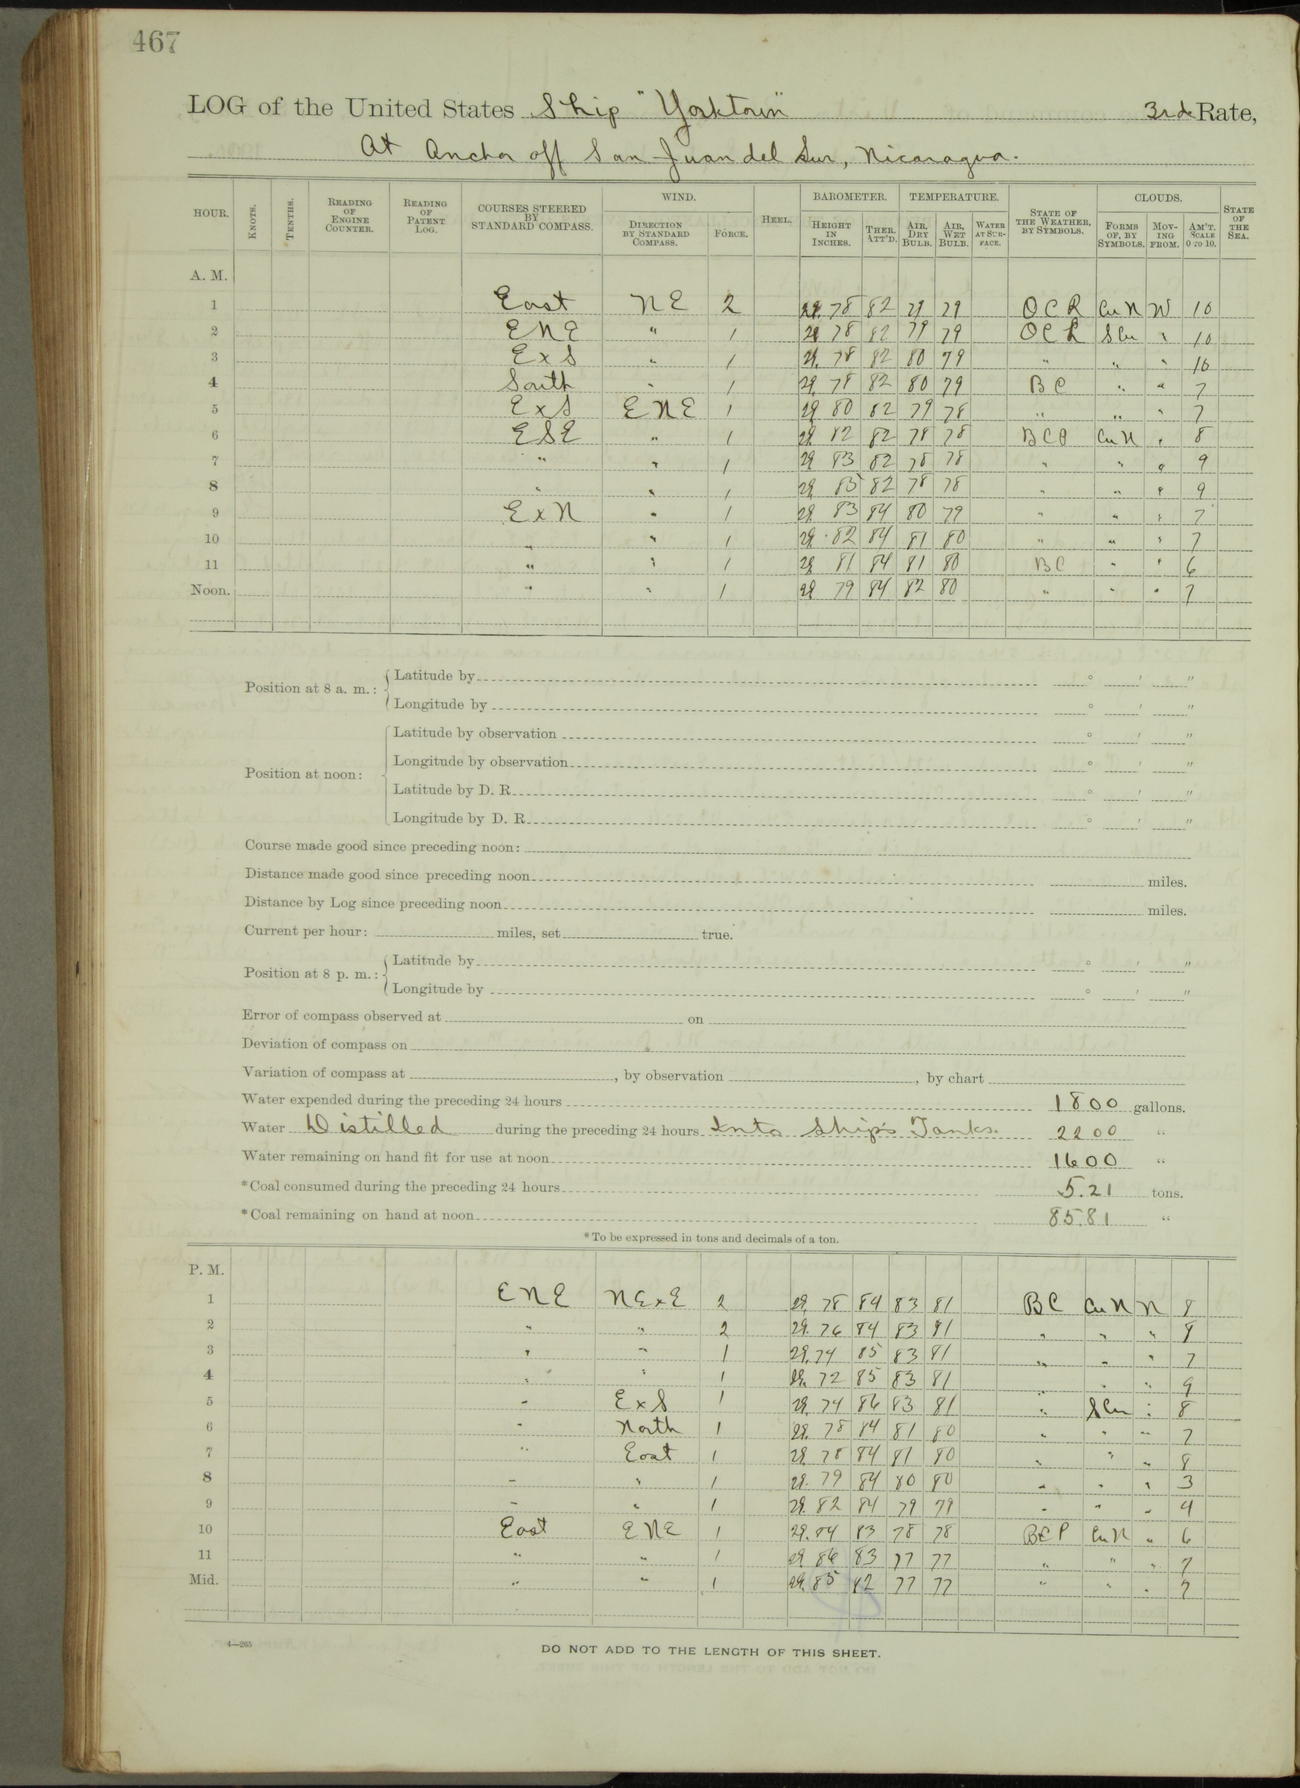 467
LOG of the United States Ship "Yorktown" 3rd Rate,
At Anchor off San Juan del Sur, Nicaragua.
HOUR. KNOTS. TENTHS. READING OF ENGINE COUNTER. READING OF PATENT LOG. COURSES STEERED BY STANDARD COMPASS. WIND. DIRECTION BY STANDARD COMPASS. FORCE. HEEL. BAROMETER. HEIGHT IN INCHES. THER. ATT'D. TEMPERATURE. AIR, DRY BULB. AIR, WET BULB. WATER AT SURFACE. STATE OF THE WEATHER, BY SYMBOLS. CLOUDS. FORMS OF, BY SYMBOLS. MOVING FROM. AM'T. SCALE 0 TO 10. STATE OF THE SEA.
A. M.
1 East NE 2 29.78 82 79 79 OCR CuN W 10
2 ENE " 1 29 78 82 79 79 OCR SCu " 10
3 ExS " 1 29. 78 82 80 79 " " " 10
4 South " 1 29. 78 82 80 79 BC " " 7
5 ExS ENE 1 29 80 82 79 78 " " " 7
6 ESE " 1 29. 82 82 78 78 BCP CuN " 8
7 " " 1 29 83 82 78 78 " " " 9
8 " " 1 29. 85 82 78 78 " " " 9
9 ExN " 1 29 83 84 80 79 " " " 7
10 " " 1 29.82 84 81 80 " " " 7
11 " " 1 29 81 84 81 80 BC " " 6
Noon. " " 1 29 79 84 82 80 " " " 7
Position at 8 a. m.: Latitude by ° ' "
Longitude by ° ' "
Position at noon: Latitude by observation ° ' "
Longitude by observation ° ' "
Latitude by D. R. ° ' "
Longitude by D. R. ° ' "
Course made good since preceding noon:
Distance made good since preceding noon miles.
Distance by Log since preceding noon miles.
Current per hour: miles, set true.
Position at 8 p. m.: Latitude by ° ' "
Longitude by ° ' "
Error of compass observed at on
Deviation of compass on
Variation of compass at , by observation , by chart
Water expended during the preceding 24 hours 1800 gallons.
Water Distilled during the preceding 24 hours Into Ship's Tanks. 2200 "
Water remaining on hand fit for use at noon 1600 "
*Coal consumed during the preceding 24 hours 5.21 tons.
*Coal remaining on hand at noon 85.81 "
*To be expressed in tons and decimals of a ton.
P. M.
1 ENE NExE 2 29. 78 84 83 81 BC CuN N 8
2 " " 2 29. 76 84 83 81 " " " 8
3 " " 1 29.74 85 83 81 " " " 7
4 " " 1 29. 72 85 83 81 " " " 9
5 " ExS 1 29. 74 86 83 81 " SCu " 8
6 " North 1 29. 78 84 81 80 " " " 7
7 " East 1 29. 78 84 81 80 " " " 8
8 " " 1 29. 79 84 80 80 " " " 3
9 " " 1 29. 82 84 79 79 " " " 4
10 East ENE 1 29.84 83 78 78 BCP CuN " 6
11 " " 1 29 86 83 77 77 " " " 7
Mid. " " 1 29.85 82 77 77 " " " 7
4—265
DO NOT ADD TO THE LENGTH OF THIS SHEET.